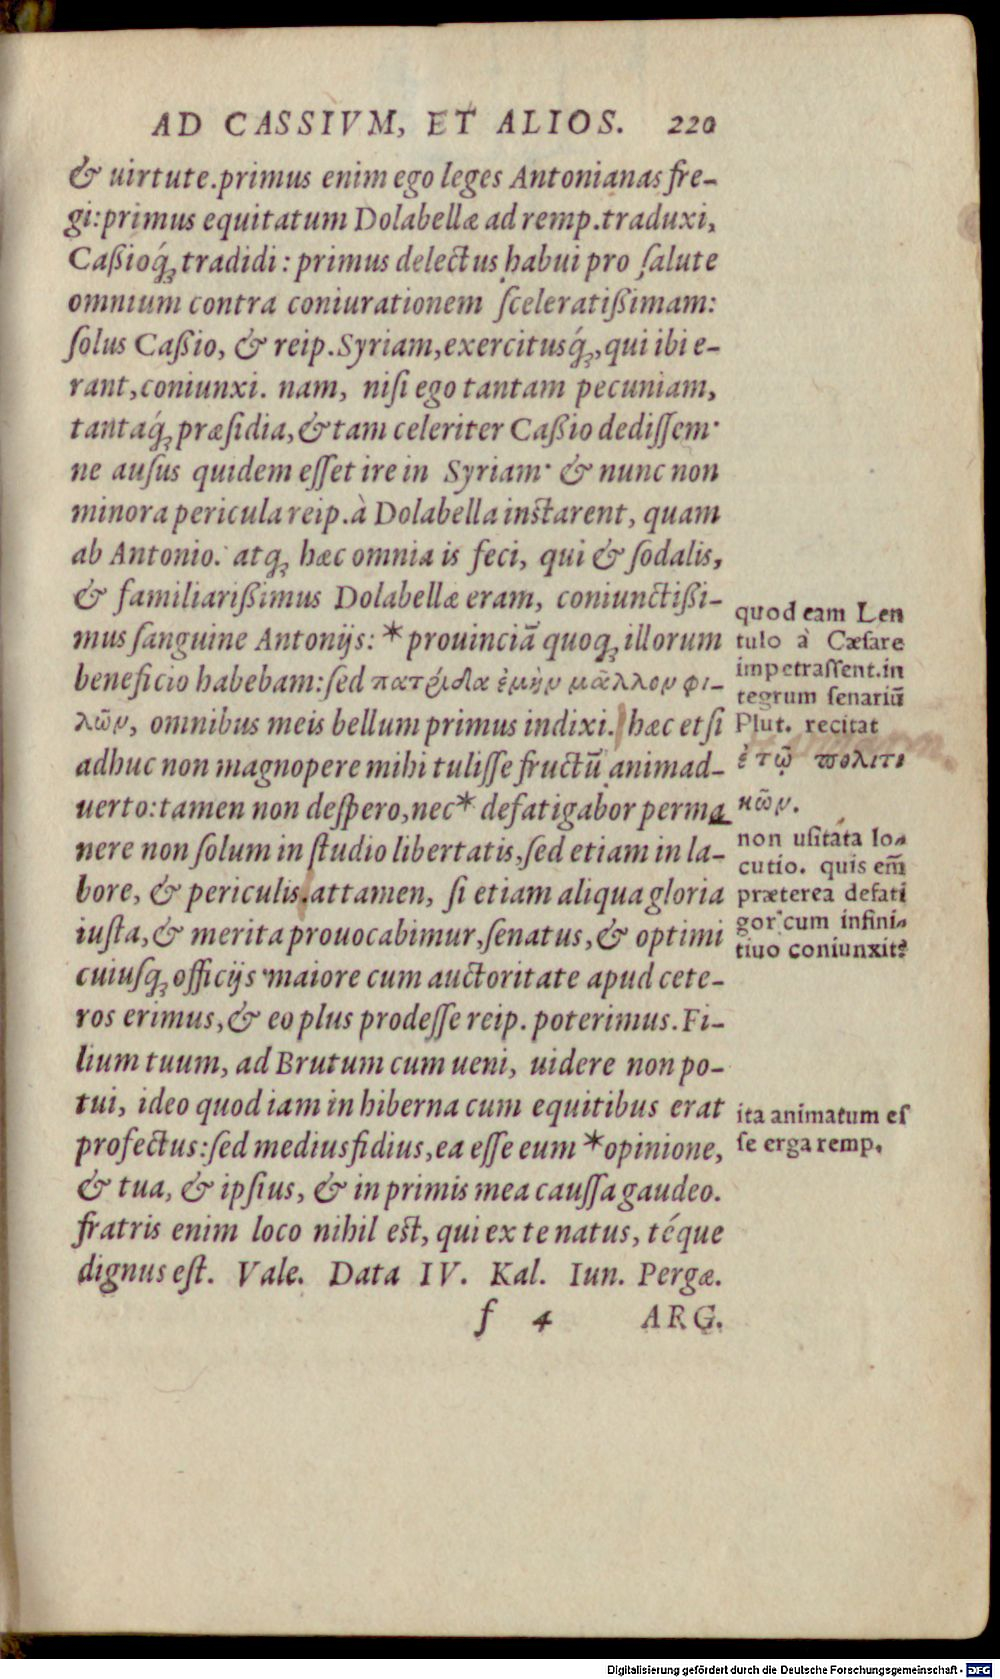 AD CASSIVM, ET ALIOS. 220
& uirtute.primus enim ego leges Antonianas fre-
gi:primus equitatum Dolabellæ ad remp.traduxi,
Caßioq́ꝫ tradidi: primus delectus habui pro ſalute
omnium contra coniurationem ſceleratißimam:
ſolus Caßio, & reip.Syriam,exercitusq́ꝫ,qui ibi e-
rant,coniunxi. nam, niſi ego tantam pecuniam,
tantaq́ꝫ præſidia,& tam celeriter Caßio dediſſem·
ne auſus quidem eſſet ire in Syriam· & nunc non
minora pericula reip.à Dolabella inſtarent, quam
ab Antonio. atqꝫ hæc omnia is feci, qui & ſodalis,
& familiarißimus Dolabellæ eram, coniunctißi-
mus ſanguine Antonijs: *prouinciā quoqꝫ illorum
beneficio habebam:ſed πατρίδα ἐμὴν μᾶλλον φι-
λῶν, omnibus meis bellum primus indixi. hæc etſi
adhuc non magnopere mihi tuliſſe fructū animad-
uerto:tamen non deſpero,nec* defatigabor perma
nere non ſolum in ſtudio libertatis,ſed etiam in la-
bore, & periculis.attamen, ſi etiam aliqua gloria
iuſta,& merita prouocabimur,ſenatus,& optimi
cuiuſqꝫ officijs maiore cum auctoritate apud cete-
ros erimus,& eo plus prodeſſe reip. poterimus. Fi-
lium tuum, ad Brutum cum ueni, uidere non po-
tui, ideo quod iam in hiberna cum equitibus erat
profectus:ſed mediusfidius,ea eſſe eum *opinione,
& tua, & ipſius, & in primis mea cauſſa gaudeo.
fratris enim loco nihil eſt, qui ex te natus, téque
dignus eſt. Vale. Data IV. Kal. Iun. Pergæ.
f 4 ARG.
quod eam Len
tulo à Cæſare
impetraſſent.in
tegrum ſenariū
Plut. recitat
ἐν τῷ πολιτι
κῶν.
non uſitata lo-
cutio. quis em̄
præterea defati
gor cum infini-
tiuo coniunxit?
ita animatum eſ
ſe erga remp.
Digitalisierung gefördert durch die Deutsche Forschungsgemeinschaft - DFG